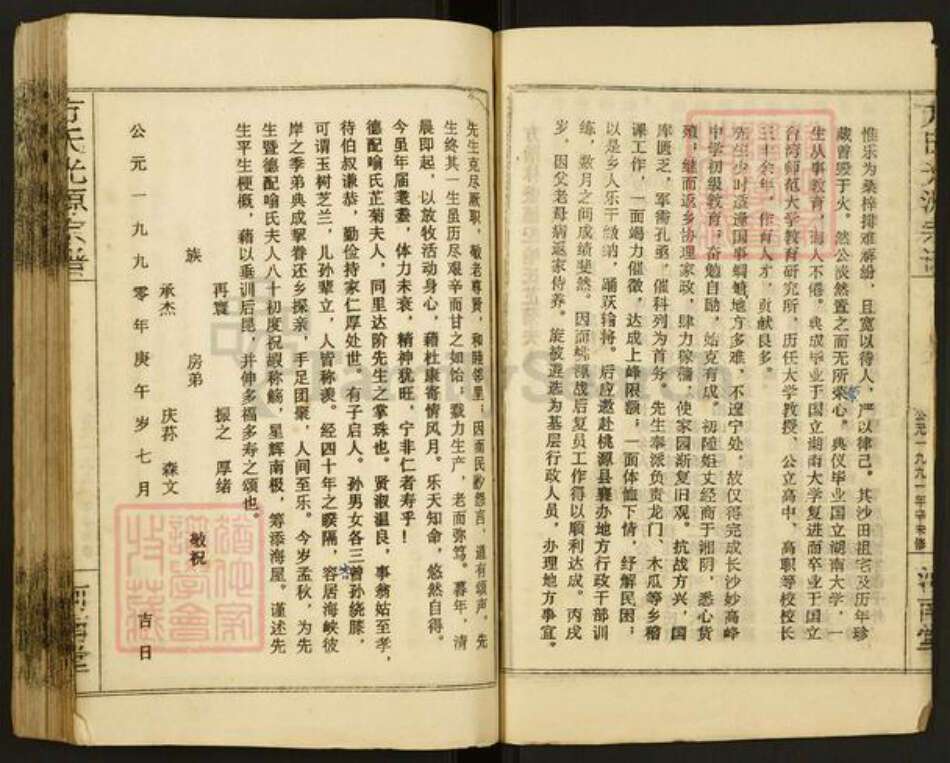 公元一九九一年辛未修
惟乐为桑梓排难解纷，且宽以待人，严以律己。其沙田祖宅及历年珍
藏曾毁于火。然公淡然置之而无所萦心。典仪毕业国立湖南大学，一
生从事教育，诲人不倦。典成毕业于国立湖南大学复进而卒业于国立
台湾师范大学教育研究所，历任大学教授、公立高中、高职等校校长
三十余年，作育人才，贡献良多。
先生少时适逢国事蜩螗地方多难，不遑宁处，故仅得完成长沙妙高峰
中学初级教育，奋勉自励，始克有成。初随姻丈经商于湘阴，悉心货
殖；继而返乡协理家政，肆力稼穑，使家园渐复旧观。抗战方兴，国
库匮乏，军需孔亟，催科列为首务。先生奉派负责龙门、木瓜等乡稽
课工作，一面竭力催徵，达成上峰限额；一面体恤下情，纾解民困；
以是乡人乐于缴纳，踊跃输将。后应邀赴桃源县襄办地方行政干部训
练，数月之间成绩斐然。因而桃源战后复员工作得以顺利达成。丙戌
岁，因父老母病返家侍养。旋被遴选为基层行政人员，办理地方事宜。
先生克尽厥职，敬老尊贤，和睦邻里；因而民尠怨言，道有颂声，先
生终其一生虽历尽艰辛而甘之如饴；戮力生产，老而弥笃。暮年，清
晨即起，以放牧活动身心，藉杜康寄情风月。乐天知命，悠然自得。
今虽年届耄耋，体力未衰，精神犹旺，宁非仁者寿乎！
德配喻氏芷菊夫人，同里达阶先生之掌珠也。贤淑温良，事翁姑至孝，
待伯叔谦恭，勤俭持家仁厚处世。有子启人。孙男女各三曾孙绕膝，
可谓玉树芝兰，儿孙辈立，人皆称羡。经四十年之暌隔，容居海峡彼
岸之季弟典成挈眷还乡探亲，手足团聚，人间至乐。今岁孟秋，为先
生暨德配喻氏夫人八十初度祝嘏称觞，星辉南极，筹添海屋。谨述先
生平生梗概，藉以垂训后昆，并伸多福多寿之颂也。
再寰 振之 厚绪
族 房弟 敬祝
承杰 庆荪 森文
公元一九九零年庚午岁七月 吉日
方氏光源宗谱
河南堂